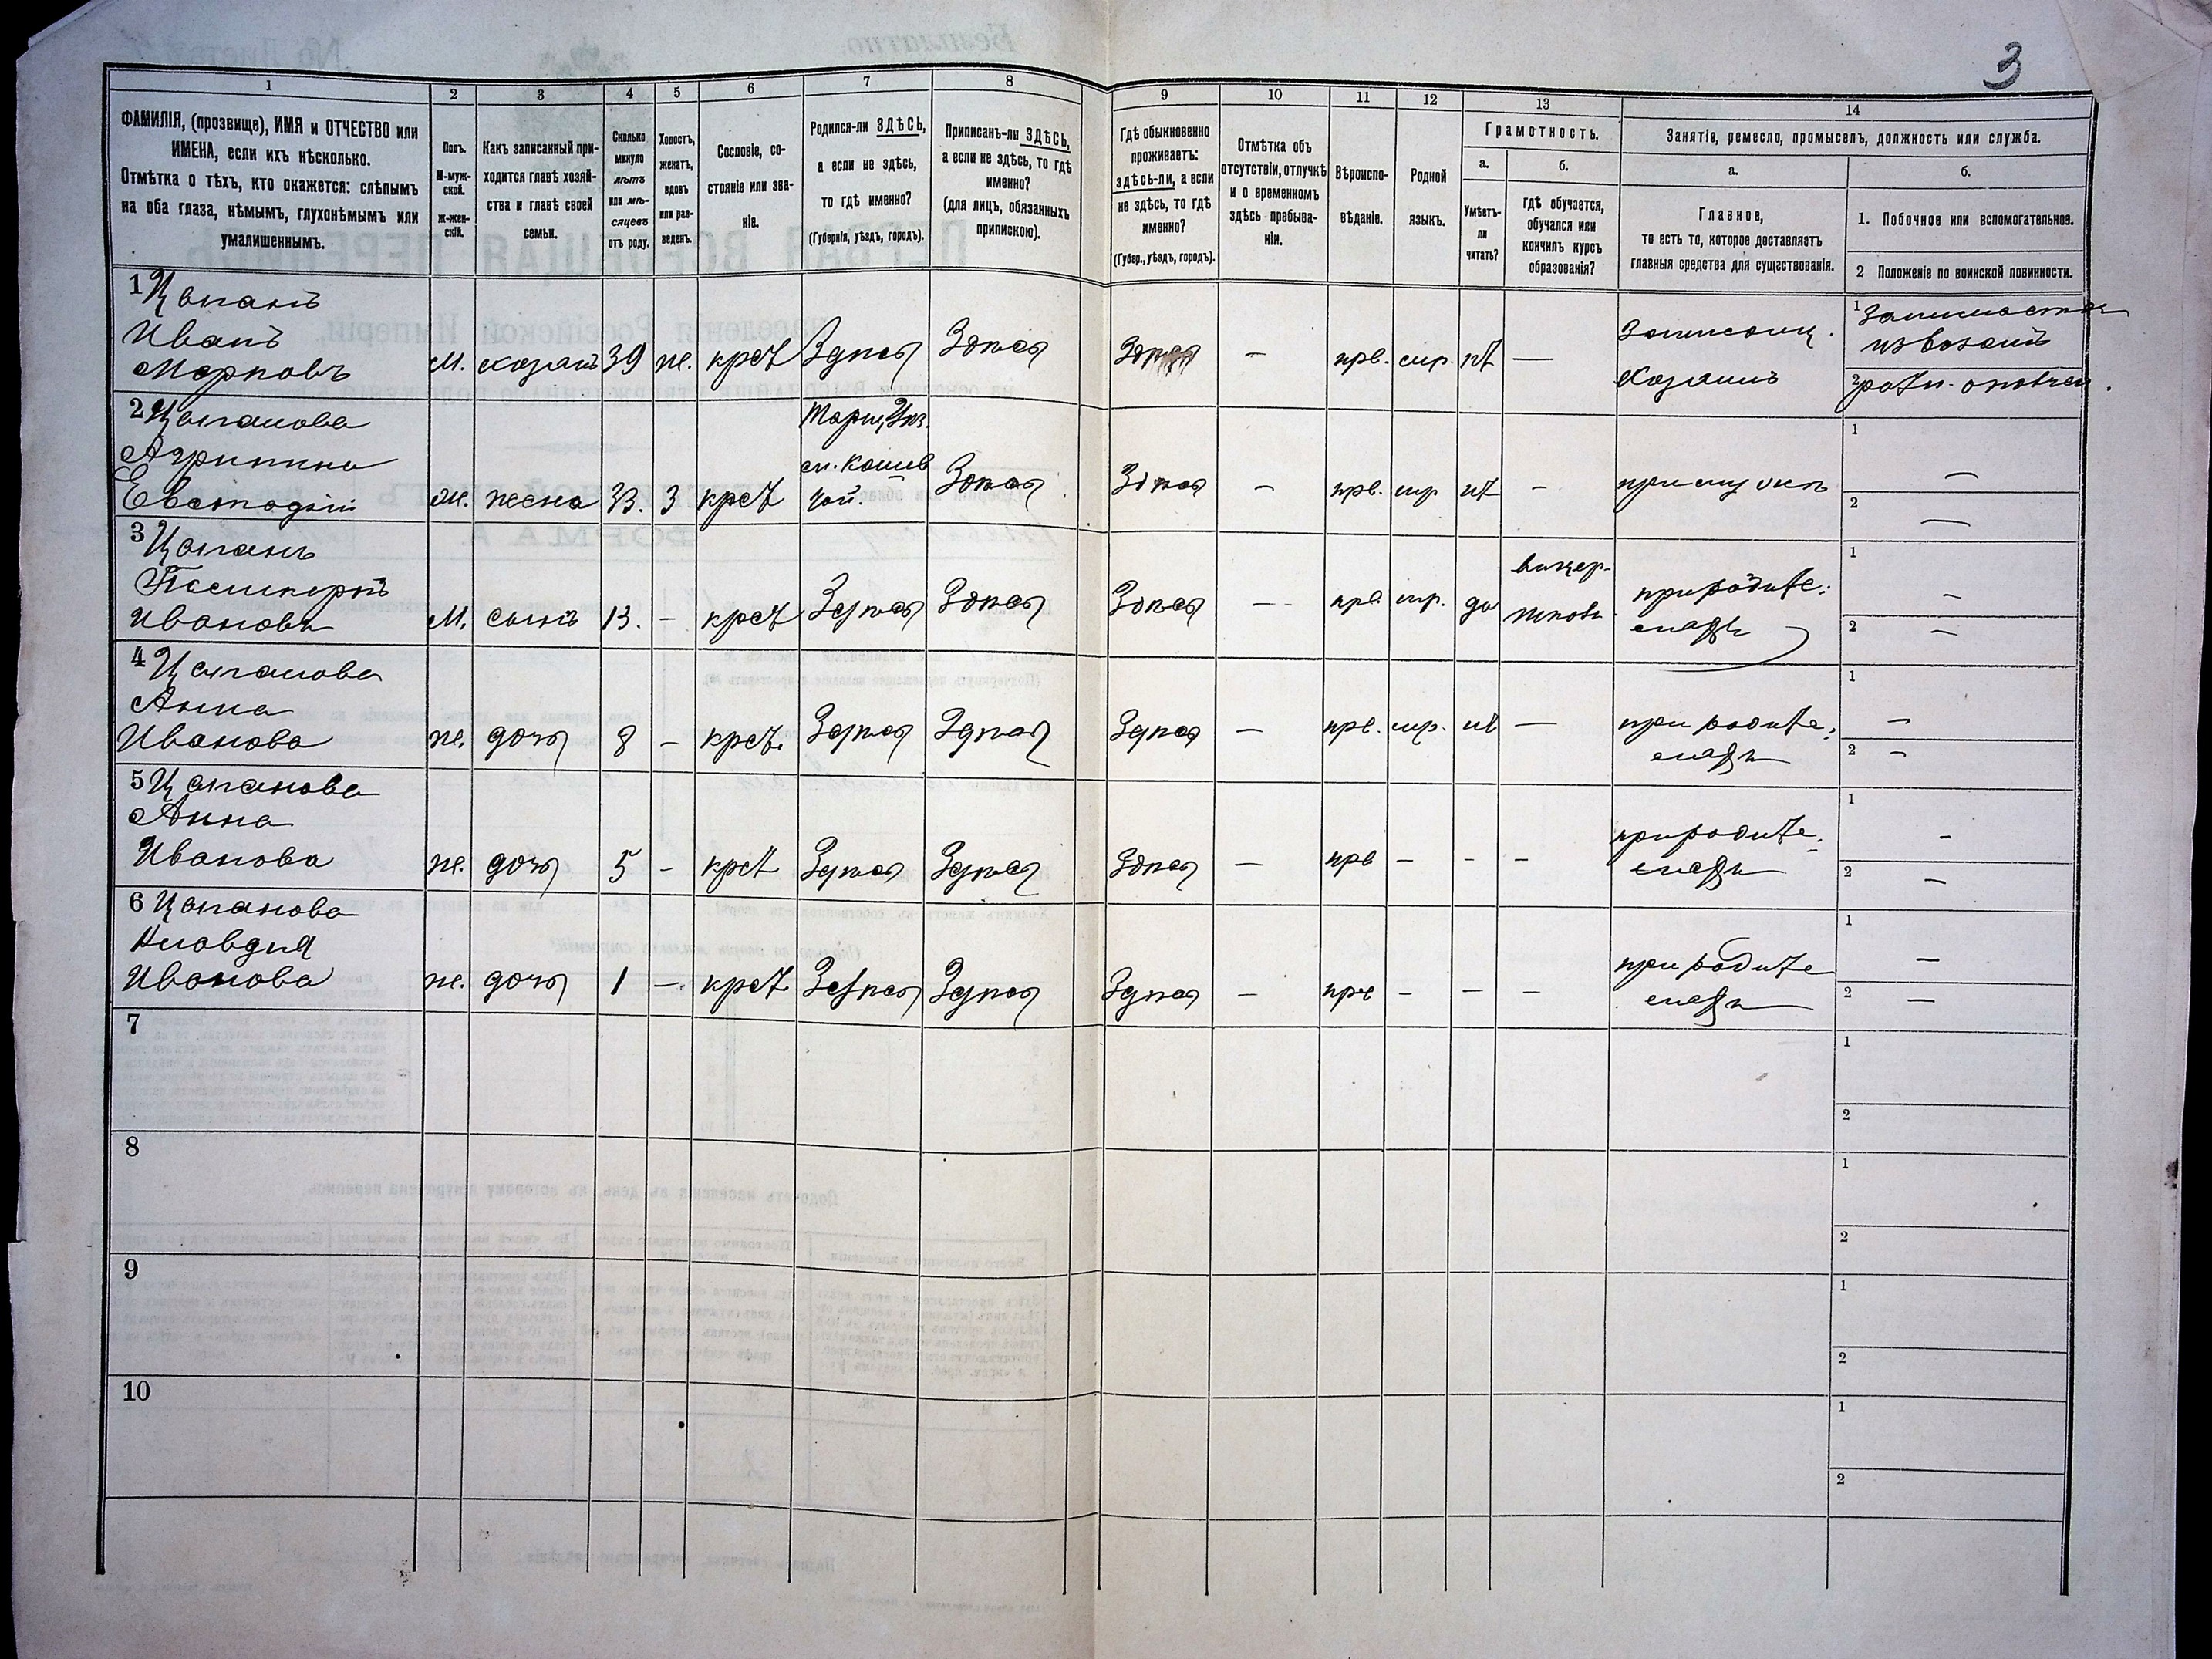 3
1
2
3
4
5
6
7
8
9
10
11
12
13
14
ФАМИЛІЯ, (прозвище), ИМЯ и ОТЧЕСТВО или
ИМЕНА, если ихъ нѣсколько.
Отмѣтка о тѣхъ, кто окажется: слѣпымъ
на оба глаза, нѣмымъ, глухонѣмымъ или
умалишеннымъ.
Полъ.
М-муж-
ской.
Ж-жен-
скій.
Какъ записанный при-
ходится главѣ хозяй-
ства и главѣ своей
семьи.
Сколько
минуло
лѣтъ
или мѣ-
сяцевъ
отъ роду.
Холостъ,
женатъ,
вдовъ
или раз-
веденъ.
Сословіе, со-
стояніе или зва-
ніе.
Родился-ли ЗДѢСЬ,
а если не здѣсь,
то гдѣ именно?
(Губернія, уѣздъ, городъ).
Приписанъ-ли ЗДѢСЬ,
а если не здѣсь, то гдѣ
именно?
(для лицъ, обязанныхъ
припискою).
Гдѣ обыкновенно
проживаетъ:
здѣсь-ли, а если
не здѣсь, то гдѣ
именно?
(Губер., уѣздъ, городъ).
Отмѣтка объ
отсутствіи, отлучкѣ
и о временномъ
здѣсь пребыва-
ніи.
Вѣроиспо-
вѣданіе.
Родной
языкъ.
Грамотность.
а.
Умѣетъ-
ли
читать?
б.
гдѣ обучается,
обучался или
кончилъ курсъ
образованія?
Занятіе, ремесло, промыселъ, должность или служба.
а.
Главное,
то есть то, которое доставляетъ
главныя средства для существованія.
б.
1. Побочное или вспомогательное.
2 Положеніе по воинской повинности.
1 Цапанъ
Иванъ
Марковъ
М. 39 крест здѣсь здѣсь здѣсь — прв. нѣт —
1
извозомъ
2
2 Цапанова
Агрипина
ж. жена 33. 3 крест здѣсь здѣсь — прв. нѣт — при мужѣ
1 —
2 —
3 Цапанъ
Ивановъ
М. сынъ 13. — крест здѣсь здѣсь здѣсь — прв. да при родите-
1 —
2 —
4 Цапанова
Анна
Иванова
ж. дочь 8 — крест. здѣсь здѣсь здѣсь — прв. нѣт — при родите-
1 —
2 —
5 Цапанова
Анна
Иванова
ж. дочь 5 — крест здѣсь здѣсь здѣсь — прв — — — при родите-
1 —
2 —
6 Цапанова
Клавдия
Иванова
ж. дочь 1 — крест здѣсь здѣсь здѣсь — прв — — — при родите
1 —
2 —
7
1
2
8
1
2
9
1
2
10
1
2